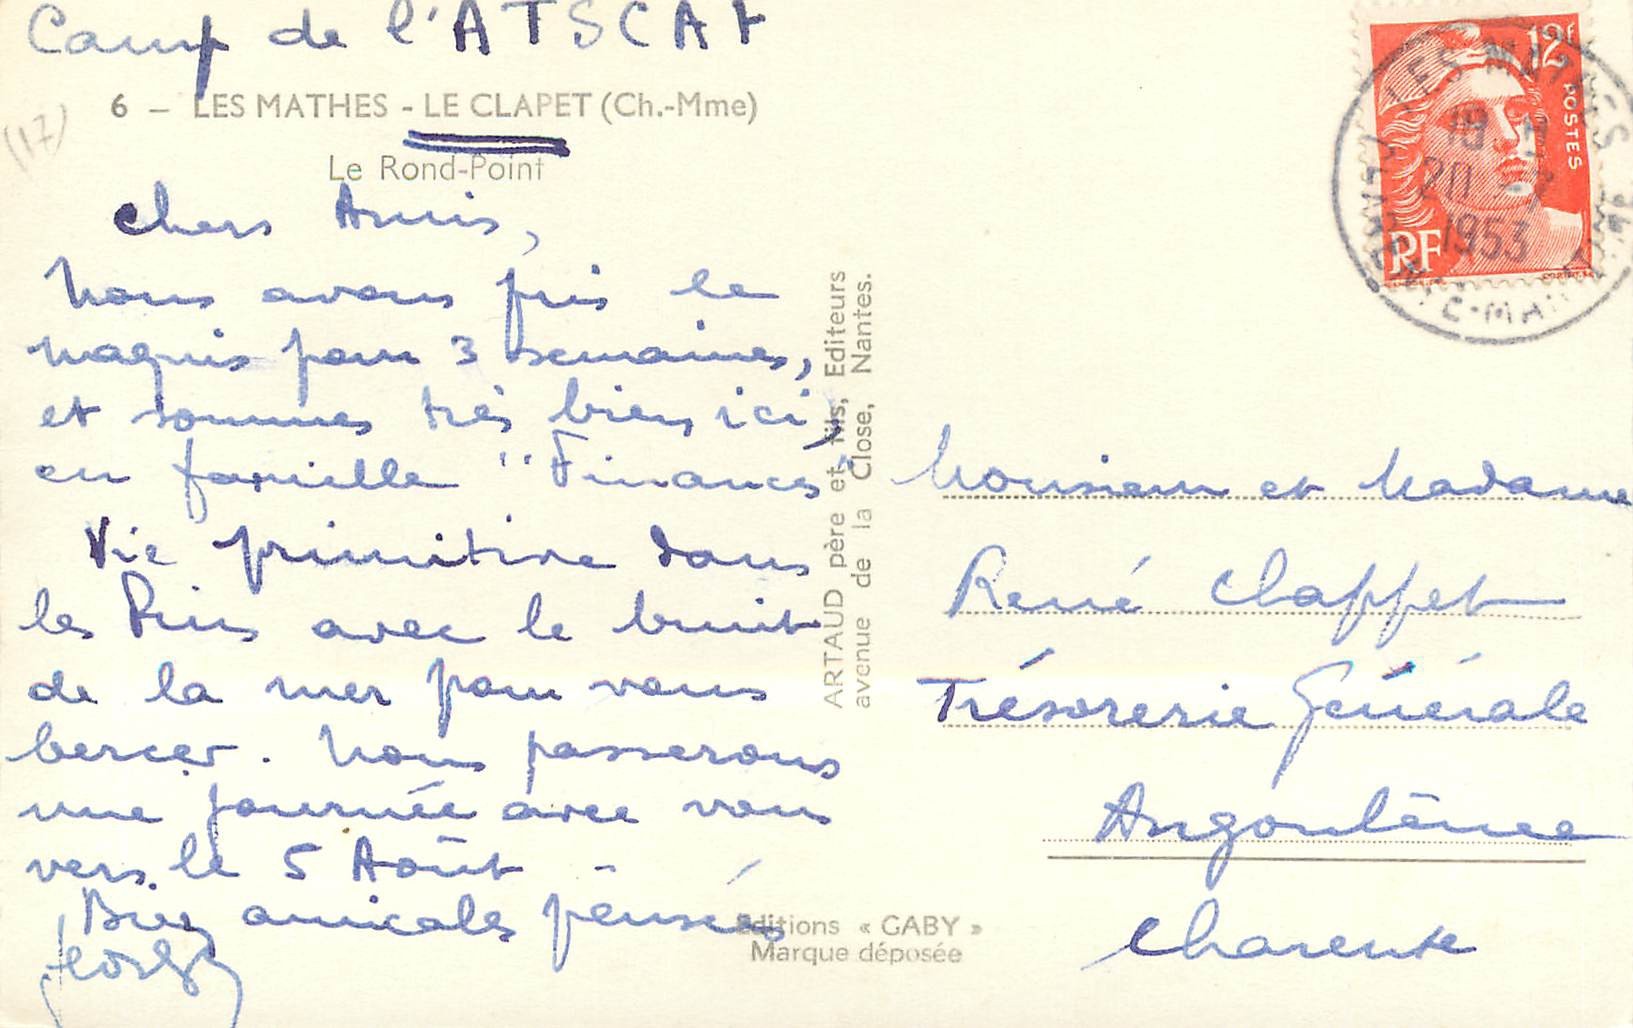 Camp de l'ATSCAF
6 – LES MATHES - LE CLAPET (Ch.-Mme)
(17)
Le Rond-Point
Chers Amis,
Nous avons pris le
maquis pour 3 semaines,
et sommes très bien ici,
en famille "Finances"
Vie primitive dans
les Pins avec le bruit
de la mer pour vous
bercer. Nous passerons
une journée avec vous
vers le 5 Août -
Bien amicales pensées
ARTAUD père et fils, Editeurs
avenue de la Close, Nantes.
Editions « GABY »
Marque déposée
12F
POSTES
RF
LES MATHES
19 H
20 - 7
1953
Monsieur et Madame
René Chappet
Trésorerie Générale
Angoulême
Charente